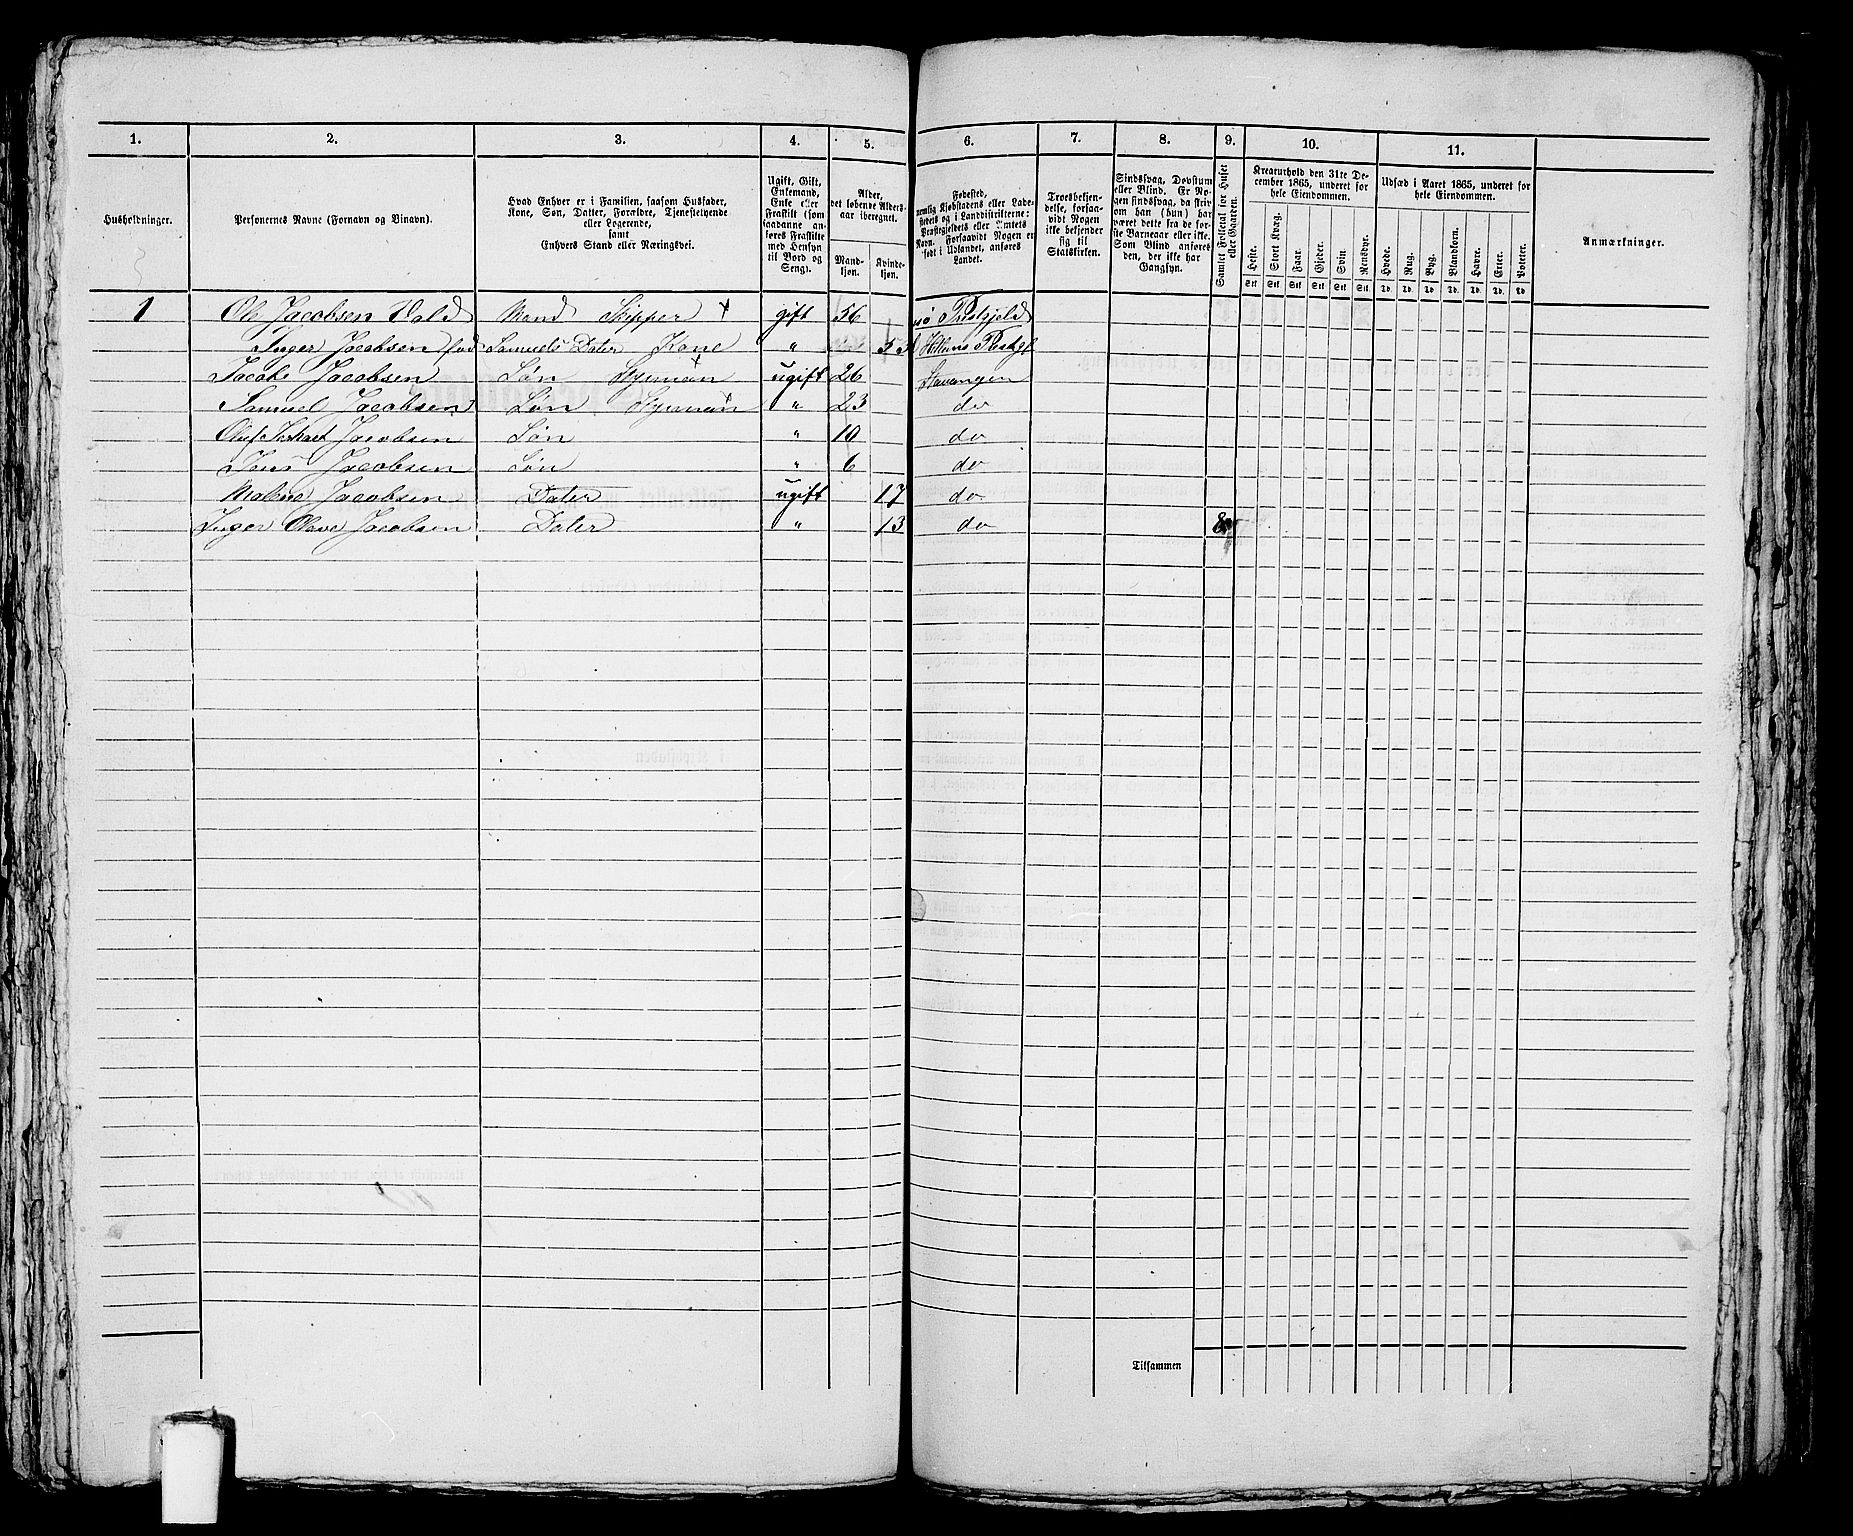 1. 2. 3. 4. 5. 6. 7. 8. 9. 10. 11.
Husholdninger.
Personernes Navne (Fornavn og Binavn).
Hvad Enhver er i Familien, saasom Husfader,
Kone, Søn, Datter, Forældre, Tjenestetyende
eller Logerende,
samt
Enhvers Stand eller Næringsvei.
Ugift, Gift,
Enkemand,
Enke eller
Fraskilt (som
saadanne an-
føres Fraskilte
med Hensyn
til Bord og
Seng).
Alder,
det løbende Alders-
aar iberegnet.
Mand-
kjøn.
Kvinde-
kjøn.
Fødested,
nemlig Kjøbstadens eller Lade-
stedets og i Landdistrikterne:
Præstegjeldets eller Amtets
Navn. Forsaavidt Nogen er
født i Udlandet, anføres
Landet.
Troesbekjen-
delse, forsaa-
vidt Nogen
ikke bekjender
sig til
Statskirken.
Sindssvag, Døvstum
eller Blind. Er No-
gen sindssvag, da skrives
om han (hun) har
været dette fra de før-
ste Barneaar eller ikke.
Som Blind anføres
den, der ikke har
Gangsyn.
Samlet Folketal for Huset
eller Gaarden.
Kreaturhold den 31te De-
cember 1865, underet for
hele Eiendommen.
Heste. Stort Kvæg. Faar. Gjeder. Svin. Rensdyr.
Stk Stk Stk Stk Stk Stk
Udsæd i Aaret 1865, underet for
hele Eiendommen.
Hvede. Rug. Byg. Blandkorn. Havre. Erter. Poteter.
Td. Td. Td. Td. Td. Td. Td
Anmærkninger.
1 Ole Jacobsen Vold Mand Skipper gift 56 Præstgjeld
Inger Jacobsen fød Samuels Dater Kone " Præstgj
Jacob Jacobsen Søn Styrman ugift 26 Stavanger
Samuel Jacobsen Søn Styrman " 23 do
Oluf Jacobsen Søn " 10 do
Jens Jacobsen Søn " 6 do
Malene Jacobsen Dater ugift 17 do
Inger Olave Jacobsen Dater " 13 do 8
Tilsammen